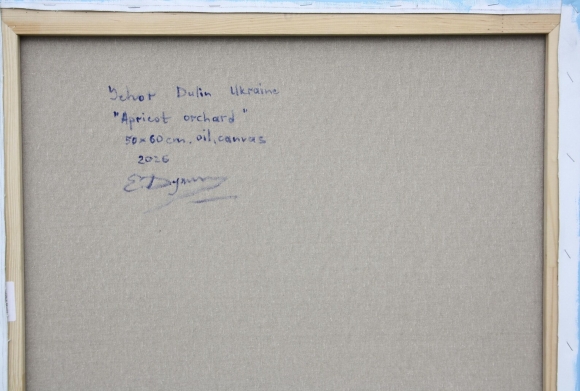 Yehor Dulin Ukraine
"Apricot orchard"
50x60cm. oil, canvas
2026